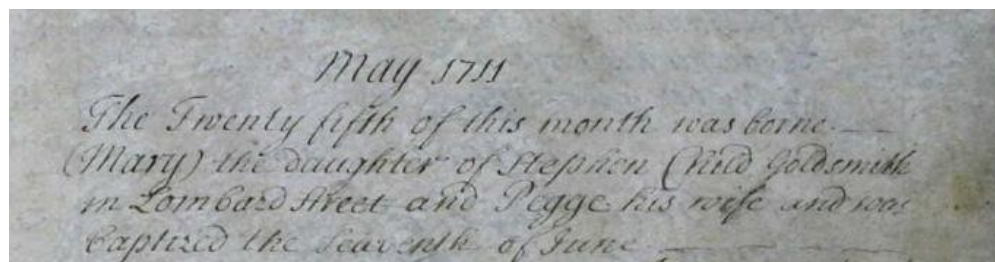 May 1711
The Twenty fifth of this month was borne
(Mary) the daughter of Stephen Child Goldsmith
in Lombard Street and Pegge his wife and was
baptized the Seaventh of June